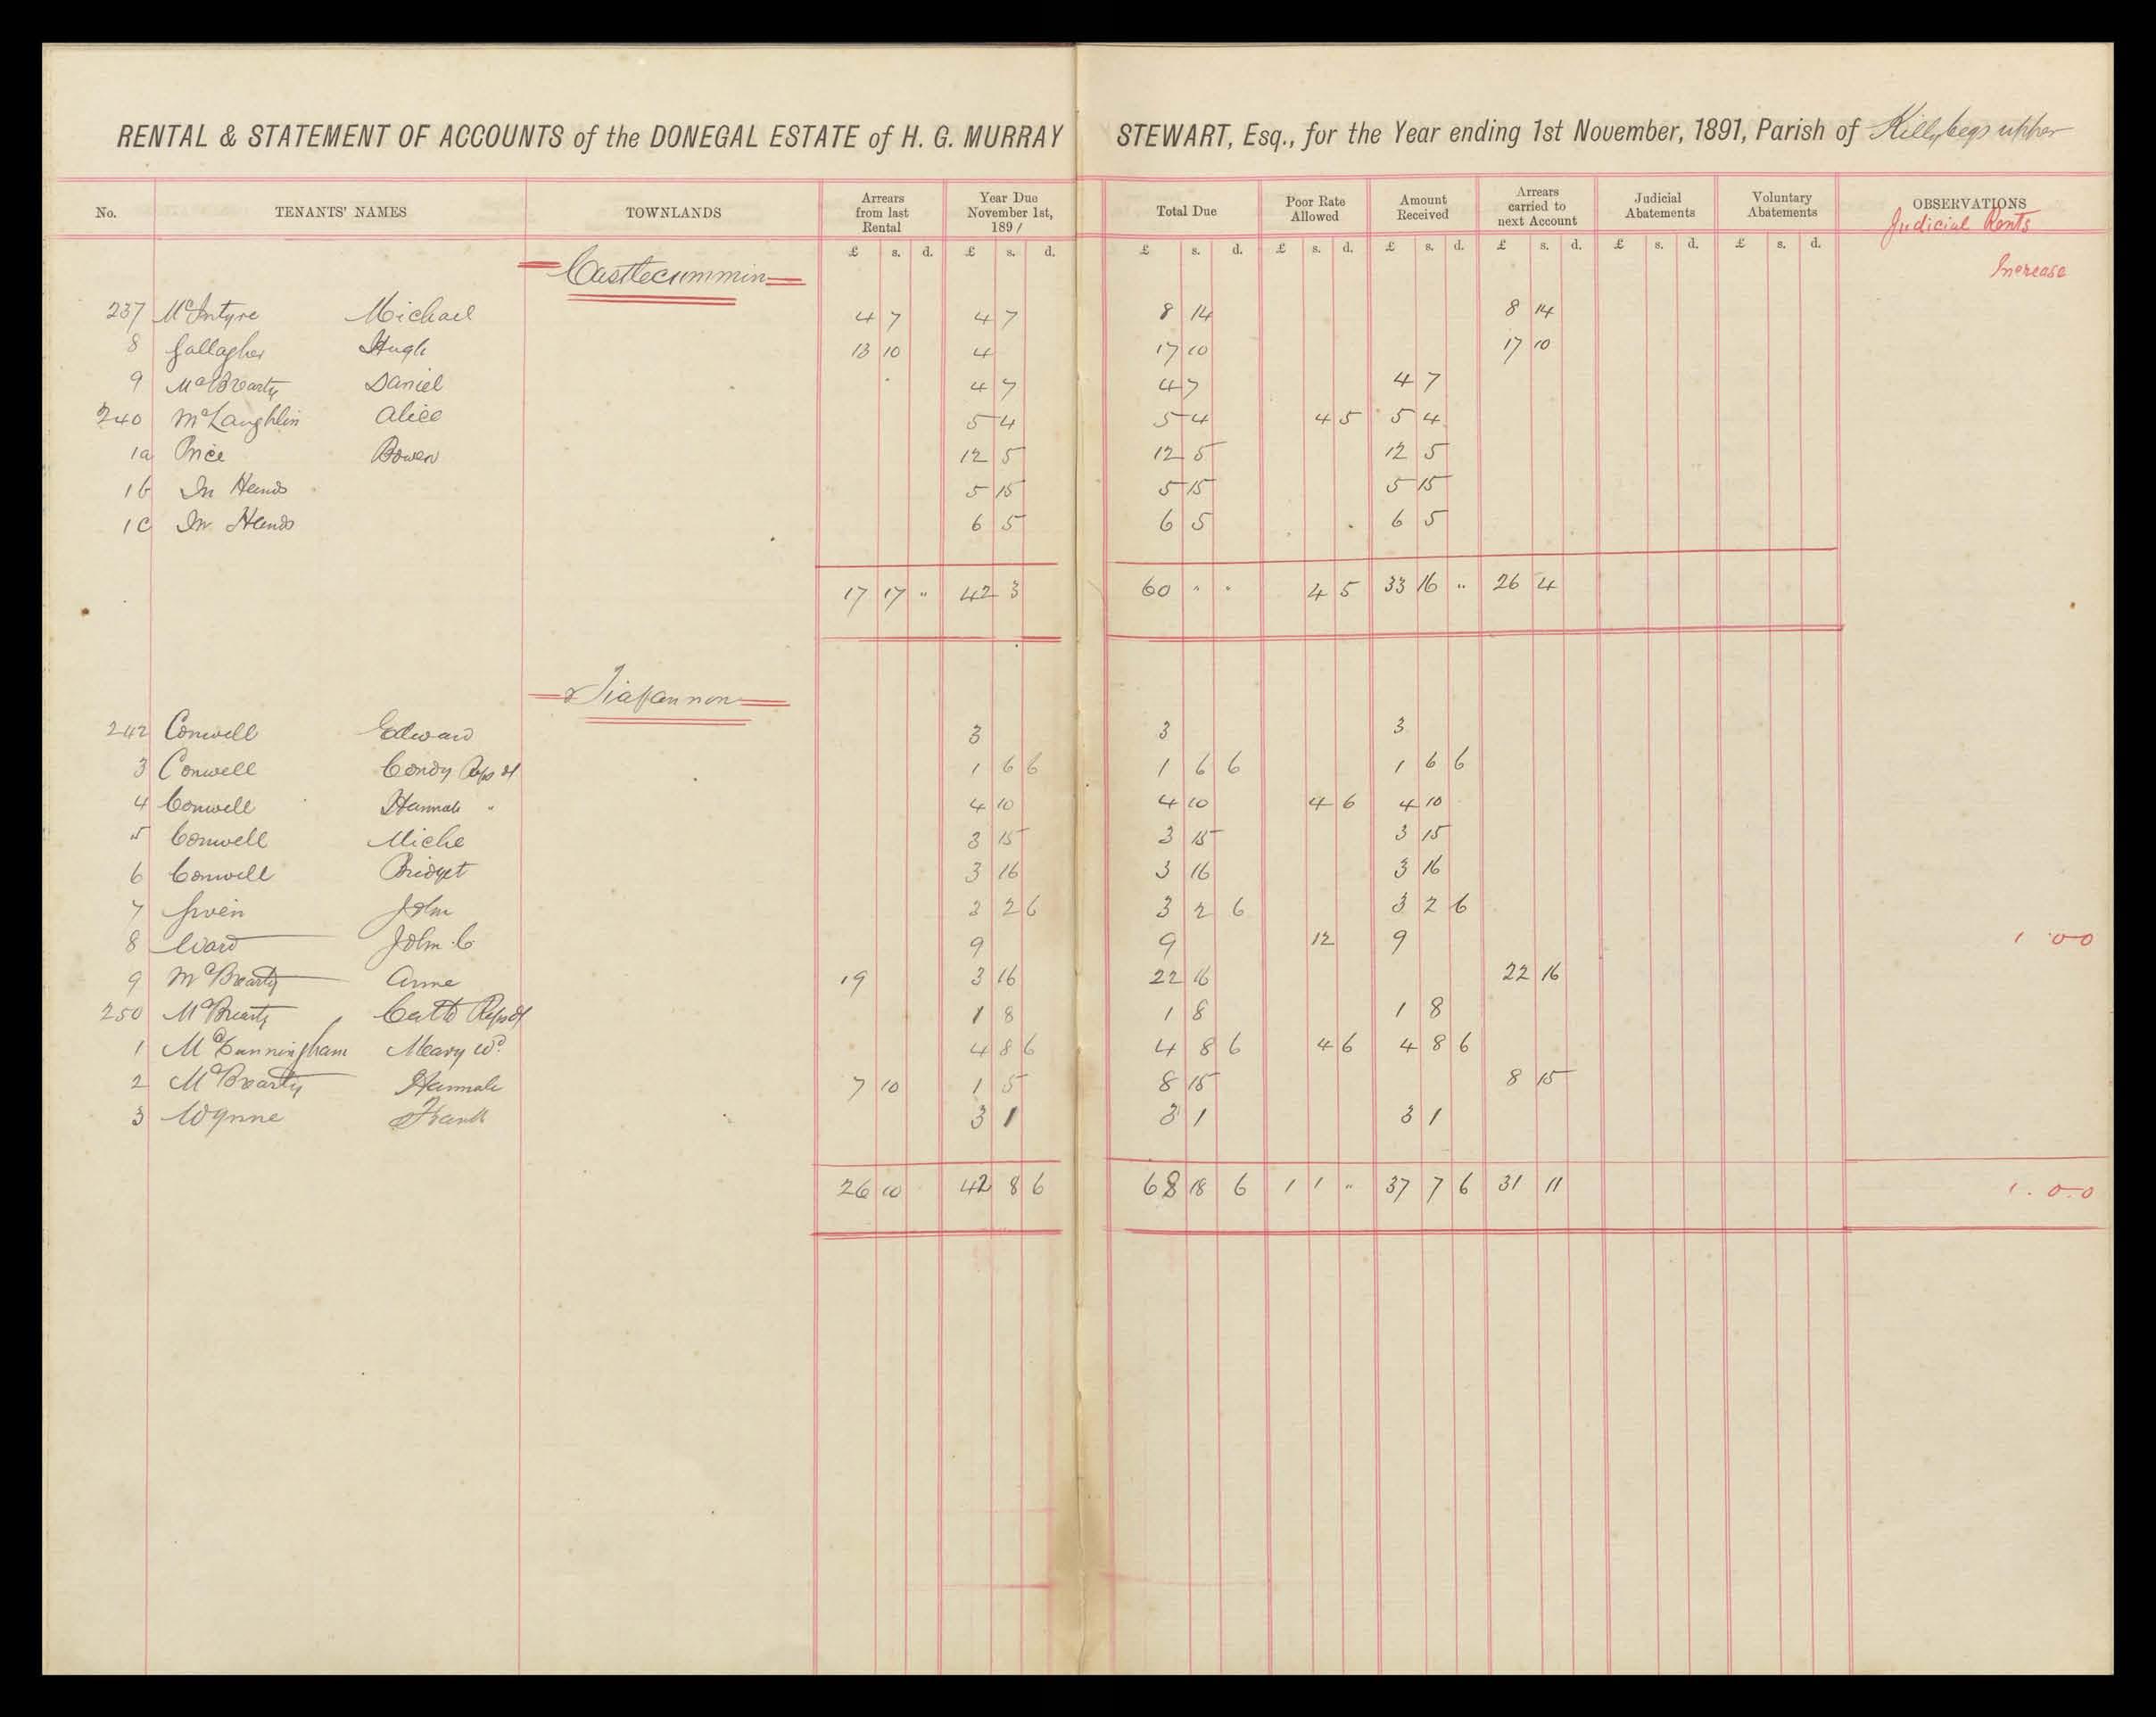 RENTAL & STATEMENT OF ACCOUNTS of the DONEGAL ESTATE of H. G. MURRAY STEWART, Esq., for the Year ending 1st November, 1891, Parish of Killybegs upper
No. TENANTS' NAMES TOWNLANDS Arrears from last Rental Year Due November 1st, 1891 Total Due Poor Rate Allowed Amount Received Arrears carried to next Account Judicial Abatements Voluntary Abatements OBSERVATIONS
Judicial Rents
£ s. d. £ s. d. £ s. d. £ s. d. £ s. d. £ s. d. £ s. d. £ s. d.
Castlecummin Increase
237 McIntyre Michael 4 7 4 7 8 14 8 14
8 Gallagher Hugh 13 10 4 17 10 17 10
9 McBrearty Daniel 4 7 4 7 4 7
240 McLaughlin Alice 5 4 5 4 4 5 5 4
1a Price Bowen 12 5 12 5 12 5
1b In Hands 5 15 5 15 5 15
1c In Hands 6 5 6 5 6 5
17 17 " 42 3 60 " " 4 5 33 16 " 26 4
242 Conwell Edward 3 3 3
3 Conwell Condy Reps of 1 6 6 1 6 6 1 6 6
4 Conwell Hannah " 4 10 4 10 4 6 4 10
5 Conwell Miche 3 15 3 15 3 15
6 Conwell Bridget 3 16 3 16 3 16
7 John 3 2 6 3 2 6 3 2 6
8 Ward John C 9 9 12 9 1 0 0
9 McBrearty Anne 19 3 16 22 16 22 16
250 McBrearty Reps of 1 8 1 8 1 8
1 McCunningham Mary Wd. 4 8 6 4 8 6 4 6 4 8 6
2 McBrearty Hannah 7 10 1 5 8 15 8 15
3 Wynne Frank 3 1 3 1 3 1
26 10 42 8 6 68 18 6 1 1 " 37 7 6 31 11 1. 0. 0